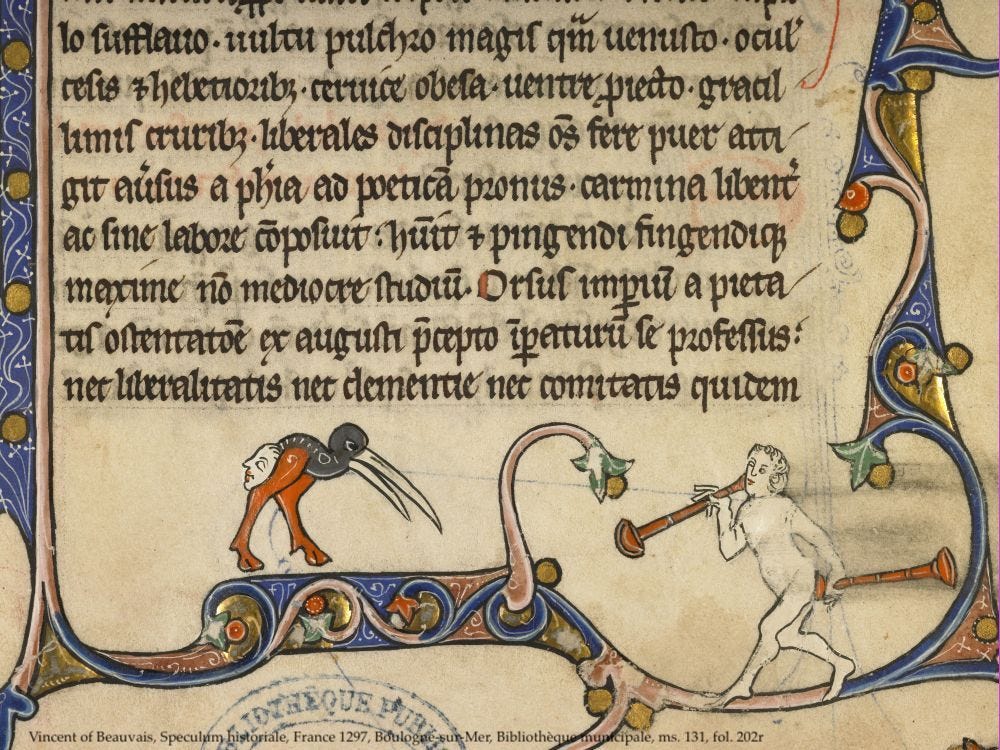 lo sufflauo · uultu pulchro magis qm̄ uenusto · ocul᾽
cesis ⁊ hebetioribꝫ · ceruice obesa · uentre ꝓiecto · gracil
limis cruribꝫ · liberales disciplinas oēs fere puer atti
git au᾽sus a ph̄ia ad poeticā pronus · carmina libent᾽
ac sine labore cōposuit : hūit ⁊ pingendi fingendiqꝫ
maxime nō mediocre studiū. Orsus imꝑiū a pieta
tis ostentatōe ex augusti p̄cepto īꝑaturū se professus :
nec liberalitatis nec clementie nec comitatis quidem
BIBLIOTHÈQUE PUBLI
Vincent of Beauvais, Speculum historiale, France 1297, Boulogne-sur-Mer, Bibliothèque municipale, ms. 131, fol. 202r